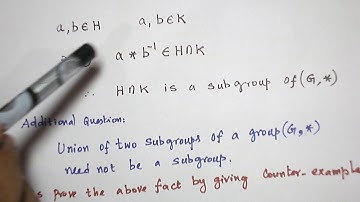 a, b ∈ H a, b ∈ K
a * b⁻¹ ∈ H∩K
∴ H∩K is a subgroup of (G, *)
Additional Question:
Union of two subgroups of a group (G, *)
need not be a subgroup.
Prove the above fact by giving Counter-example